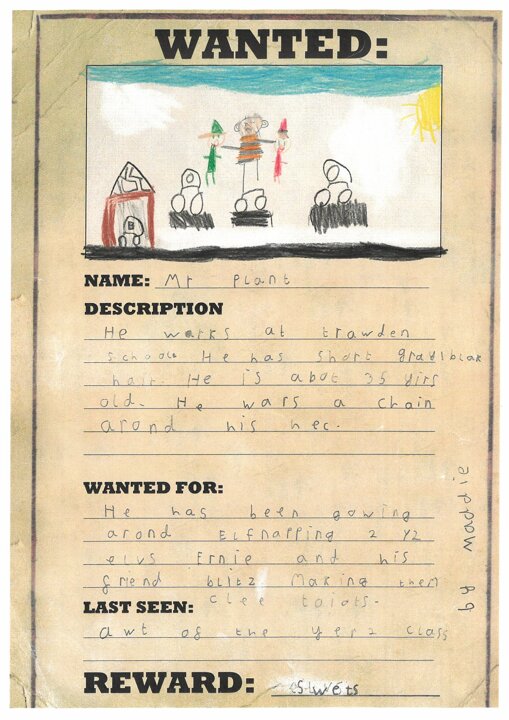 WANTED:
B
NAME: Mr Plant
DESCRIPTION
He warks at trawden
schoole He has short gray/blak
hair. He is abot 35 yirs
old. He wars a chain
arond his nec.
WANTED FOR:
He has been gowing
arond Elfnapping 2 Y2
elvs Ernie and his
friend blitz. Making them
clee toiots.
LAST SEEN:
awt of the yer 2 class
REWARD: Swets
by waddie